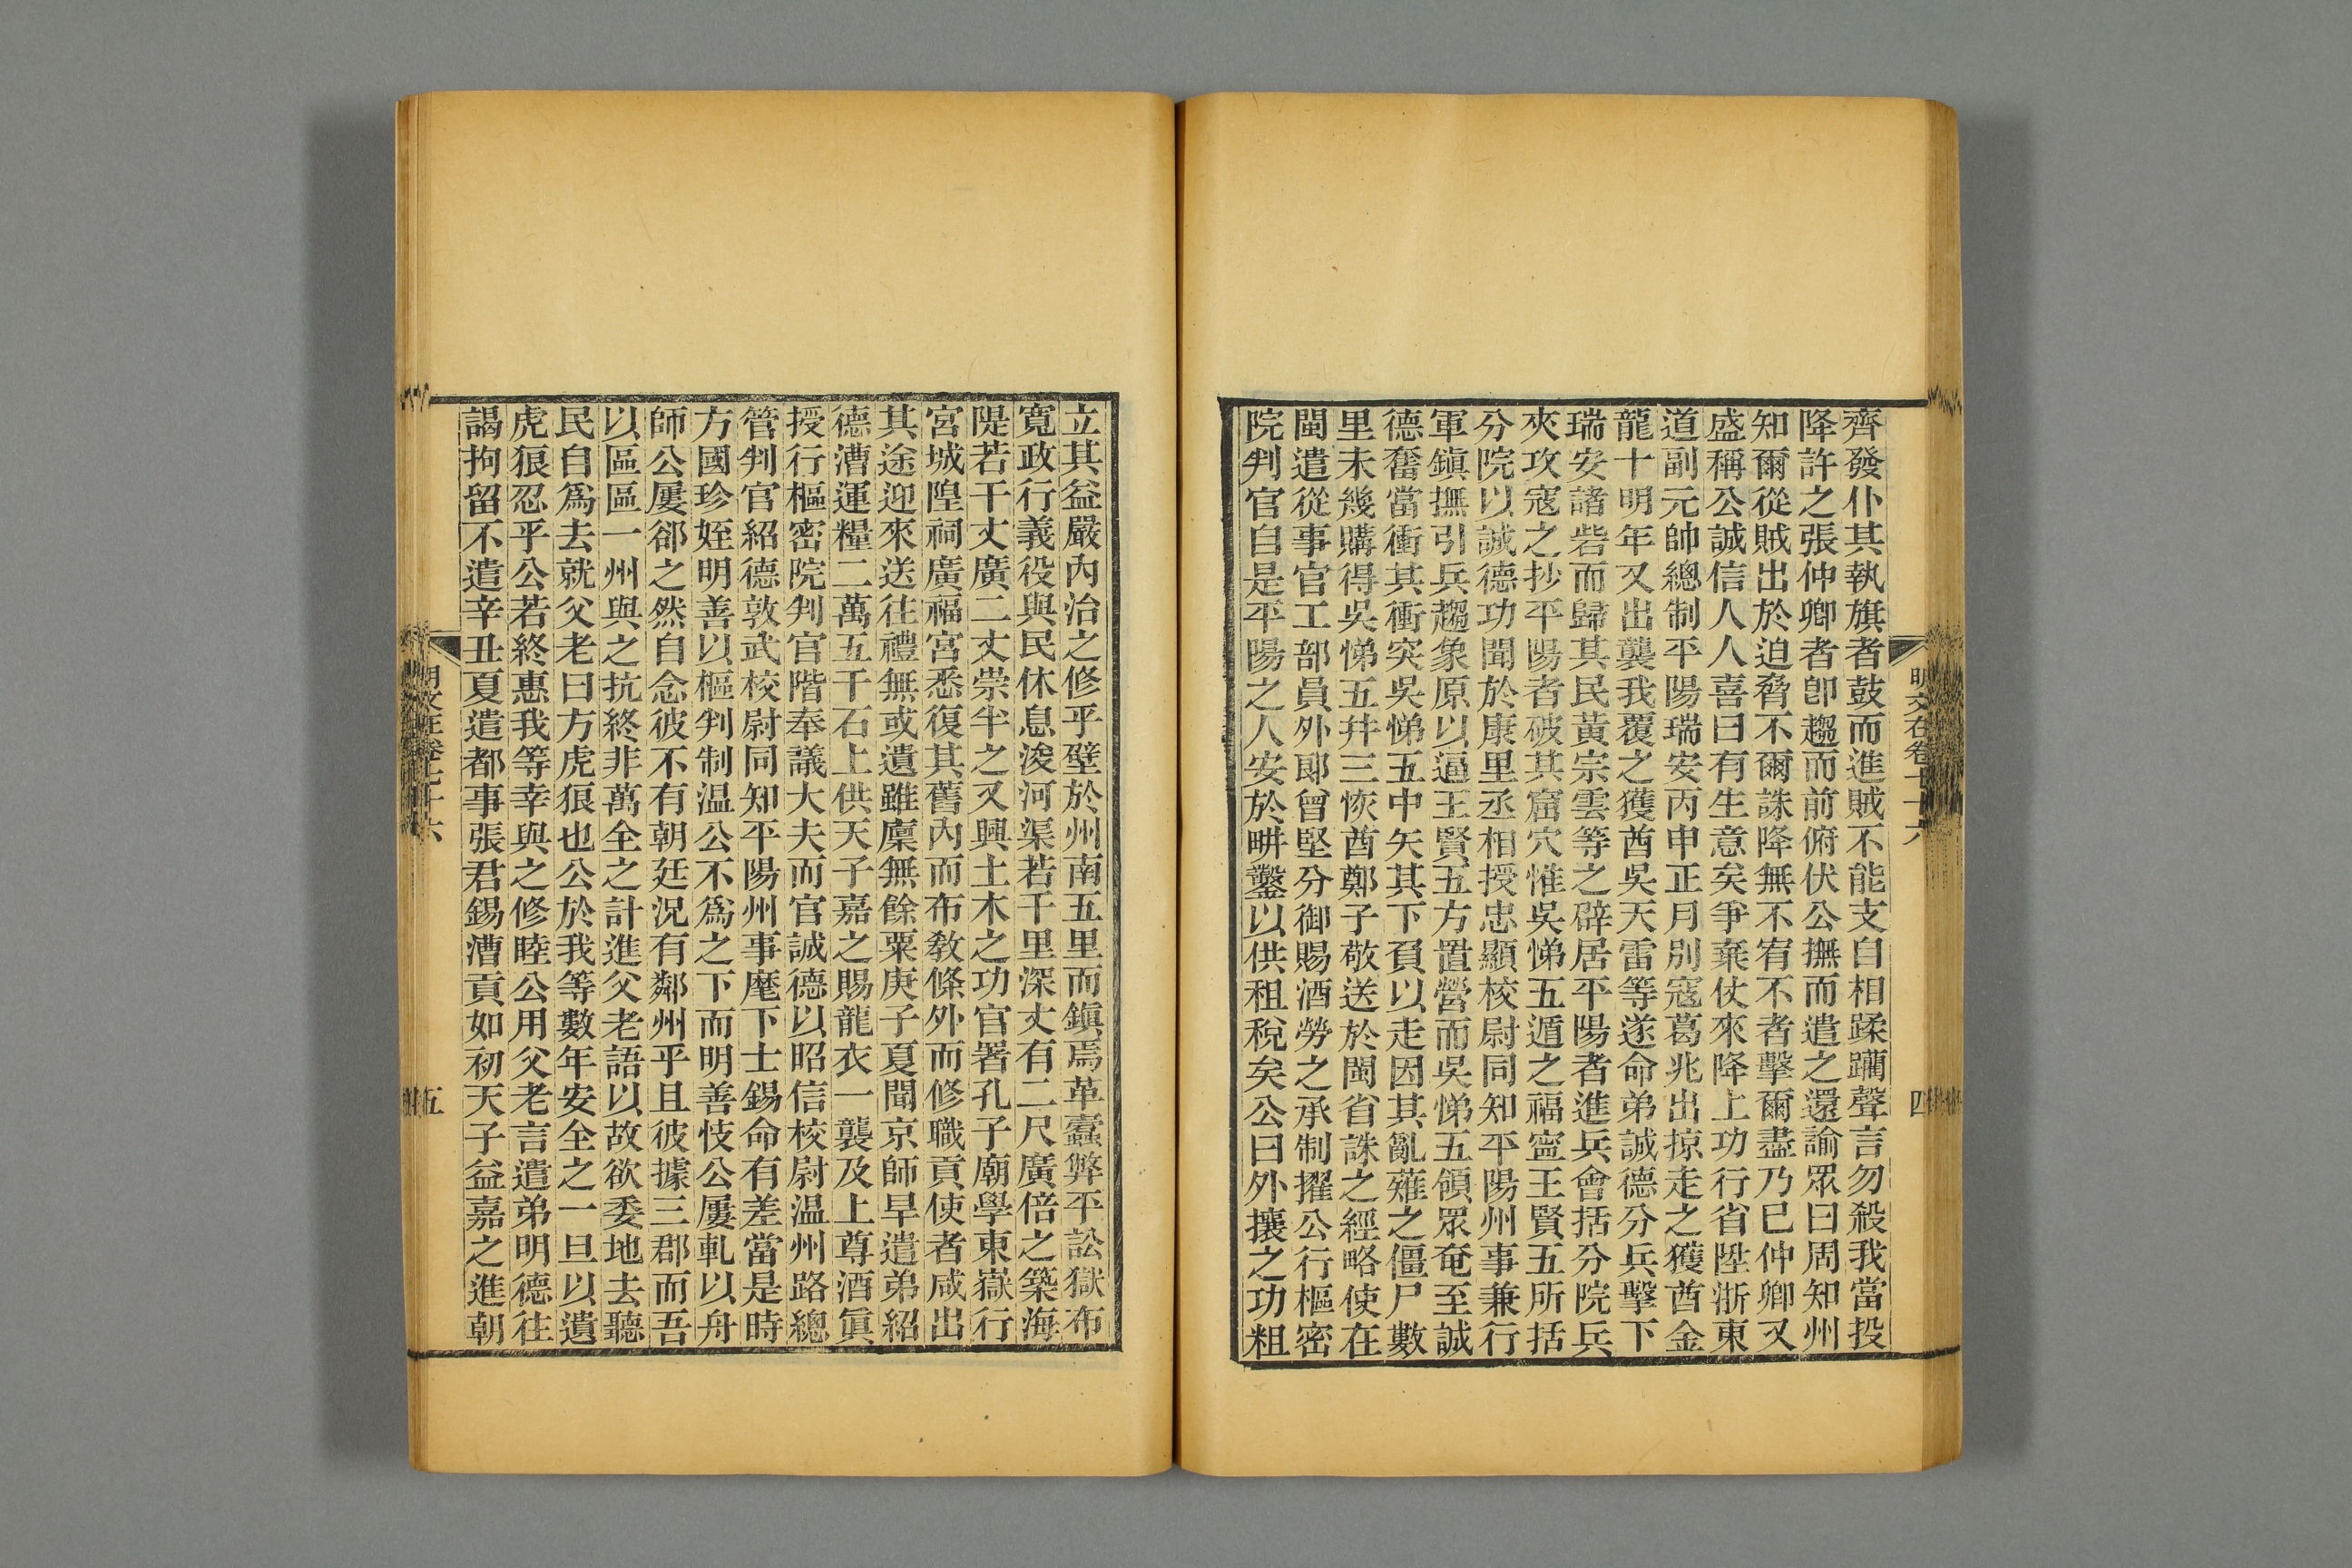 齊發仆其執旗者鼓而進賊不能支自相蹂躪聲言勿殺我當投
降許之張仲卿者卽趨而前俯伏公撫而遣之還諭眾曰周知州
知爾從賊出於迫脅不爾誅降無不宥不者擊爾盡乃已仲卿又
盛稱公誠信人人喜曰有生意矣爭棄仗來降上功行省陞浙東
道副元帥總制平陽瑞安丙申正月別寇葛兆出掠走之獲酋金
龍十明年又出襲我覆之獲酋吳天雷等遂命弟誠德分兵擊下
瑞安諸砦而歸其民黃宗雲等之辟居平陽者進兵會括分院兵
夾攻寇之抄平陽者破其窟穴惟吳悌五遁之福寧王賢五所括
分院以誠德功聞於康里丞相授忠顯校尉同知平陽州事兼行
軍鎮撫引兵趨象原以逼王賢五方置營而吳悌五領眾奄至誠
德奮當衝其衝突吳悌五中矢其下負以走因其亂薙之僵尸數
里未幾購得吳悌五幷三恢酋鄭子敬送於閩省誅之經略使在
閩遣從事官工部員外郎曾堅分御賜酒勞之承制擢公行樞密
院判官自是平陽之人安於畊鑿以供租稅矣公曰外攘之功粗
明文在卷七十六
四
立其益嚴內治之修乎壁於州南五里而鎮焉革蠹弊平訟獄布
寬政行義役與民休息浚河渠若干里深丈有二尺廣倍之築海
隄若干丈廣二丈崇半之又興土木之功官署孔子廟學東嶽行
宮城隍祠廣福宮悉復其舊內而布敎條外而修職貢使者咸出
其途迎來送往禮無或遺雖廩無餘粟庚子夏聞京師旱遣弟紹
德漕運糧二萬五千石上供天子嘉之賜龍衣一襲及上尊酒眞
授行樞密院判官階奉議大夫而官誠德以昭信校尉温州路總
管判官紹德敦武校尉同知平陽州事麾下士錫命有差當是時
方國珍姪明善以樞判制温公不爲之下而明善忮公屢軋以舟
師公屢郤之然自念彼不有朝廷況有鄰州乎且彼據三郡而吾
以區區一州與之抗終非萬全之計進父老語以故欲委地去聽
民自爲去就父老曰方虎狼也公於我等數年安全之一旦以遺
虎狼忍乎公若終惠我等幸與之修睦公用父老言遣弟明德往
謁拘留不遣辛丑夏遣都事張君錫漕貢如初天子益嘉之進朝
明文在卷七十六
五